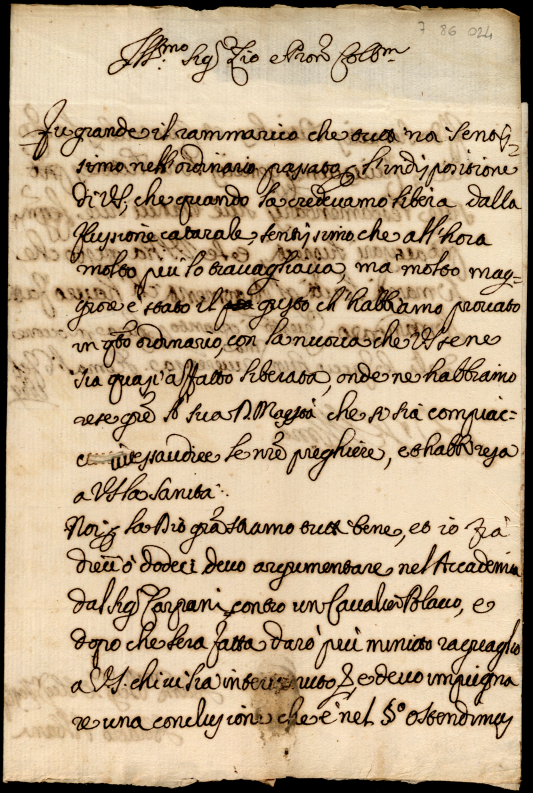 7 86 024
Ill.mo Sig.r Zio e Pron Col.mo
Fu grande il rammarico che tutti noi sentis-
simo nell'ordinario passato l'indispositione
di VS, che quando la credevamo libera dalla
flussione catarale, sentissimo che all'hora
molto più lo travagliava, ma molto mag=
giore è stato il gusto ch'habbiamo provato
in q̃to ordinario, con la nuova che VS se ne
sia quasi affatto liberata, onde ne habbiamo
rese grẽ a sua D. Maestà che si sia compiac=
essaudire le nr̃e preghiere, et habbi resa
a VS la sanità.
Noi p la Dio grã stiamo tutti bene, et io frà
dieci ò dodeci devo argumentare nel Accademia
dal Sig.r Carpani, contro un Cavalier Polaco, e
dopo che sera fatta darò più minuto raguaglio
a VS. chi vi sia intervenuto, e devo impugna
re una conclusione che è nel §° ostendimus